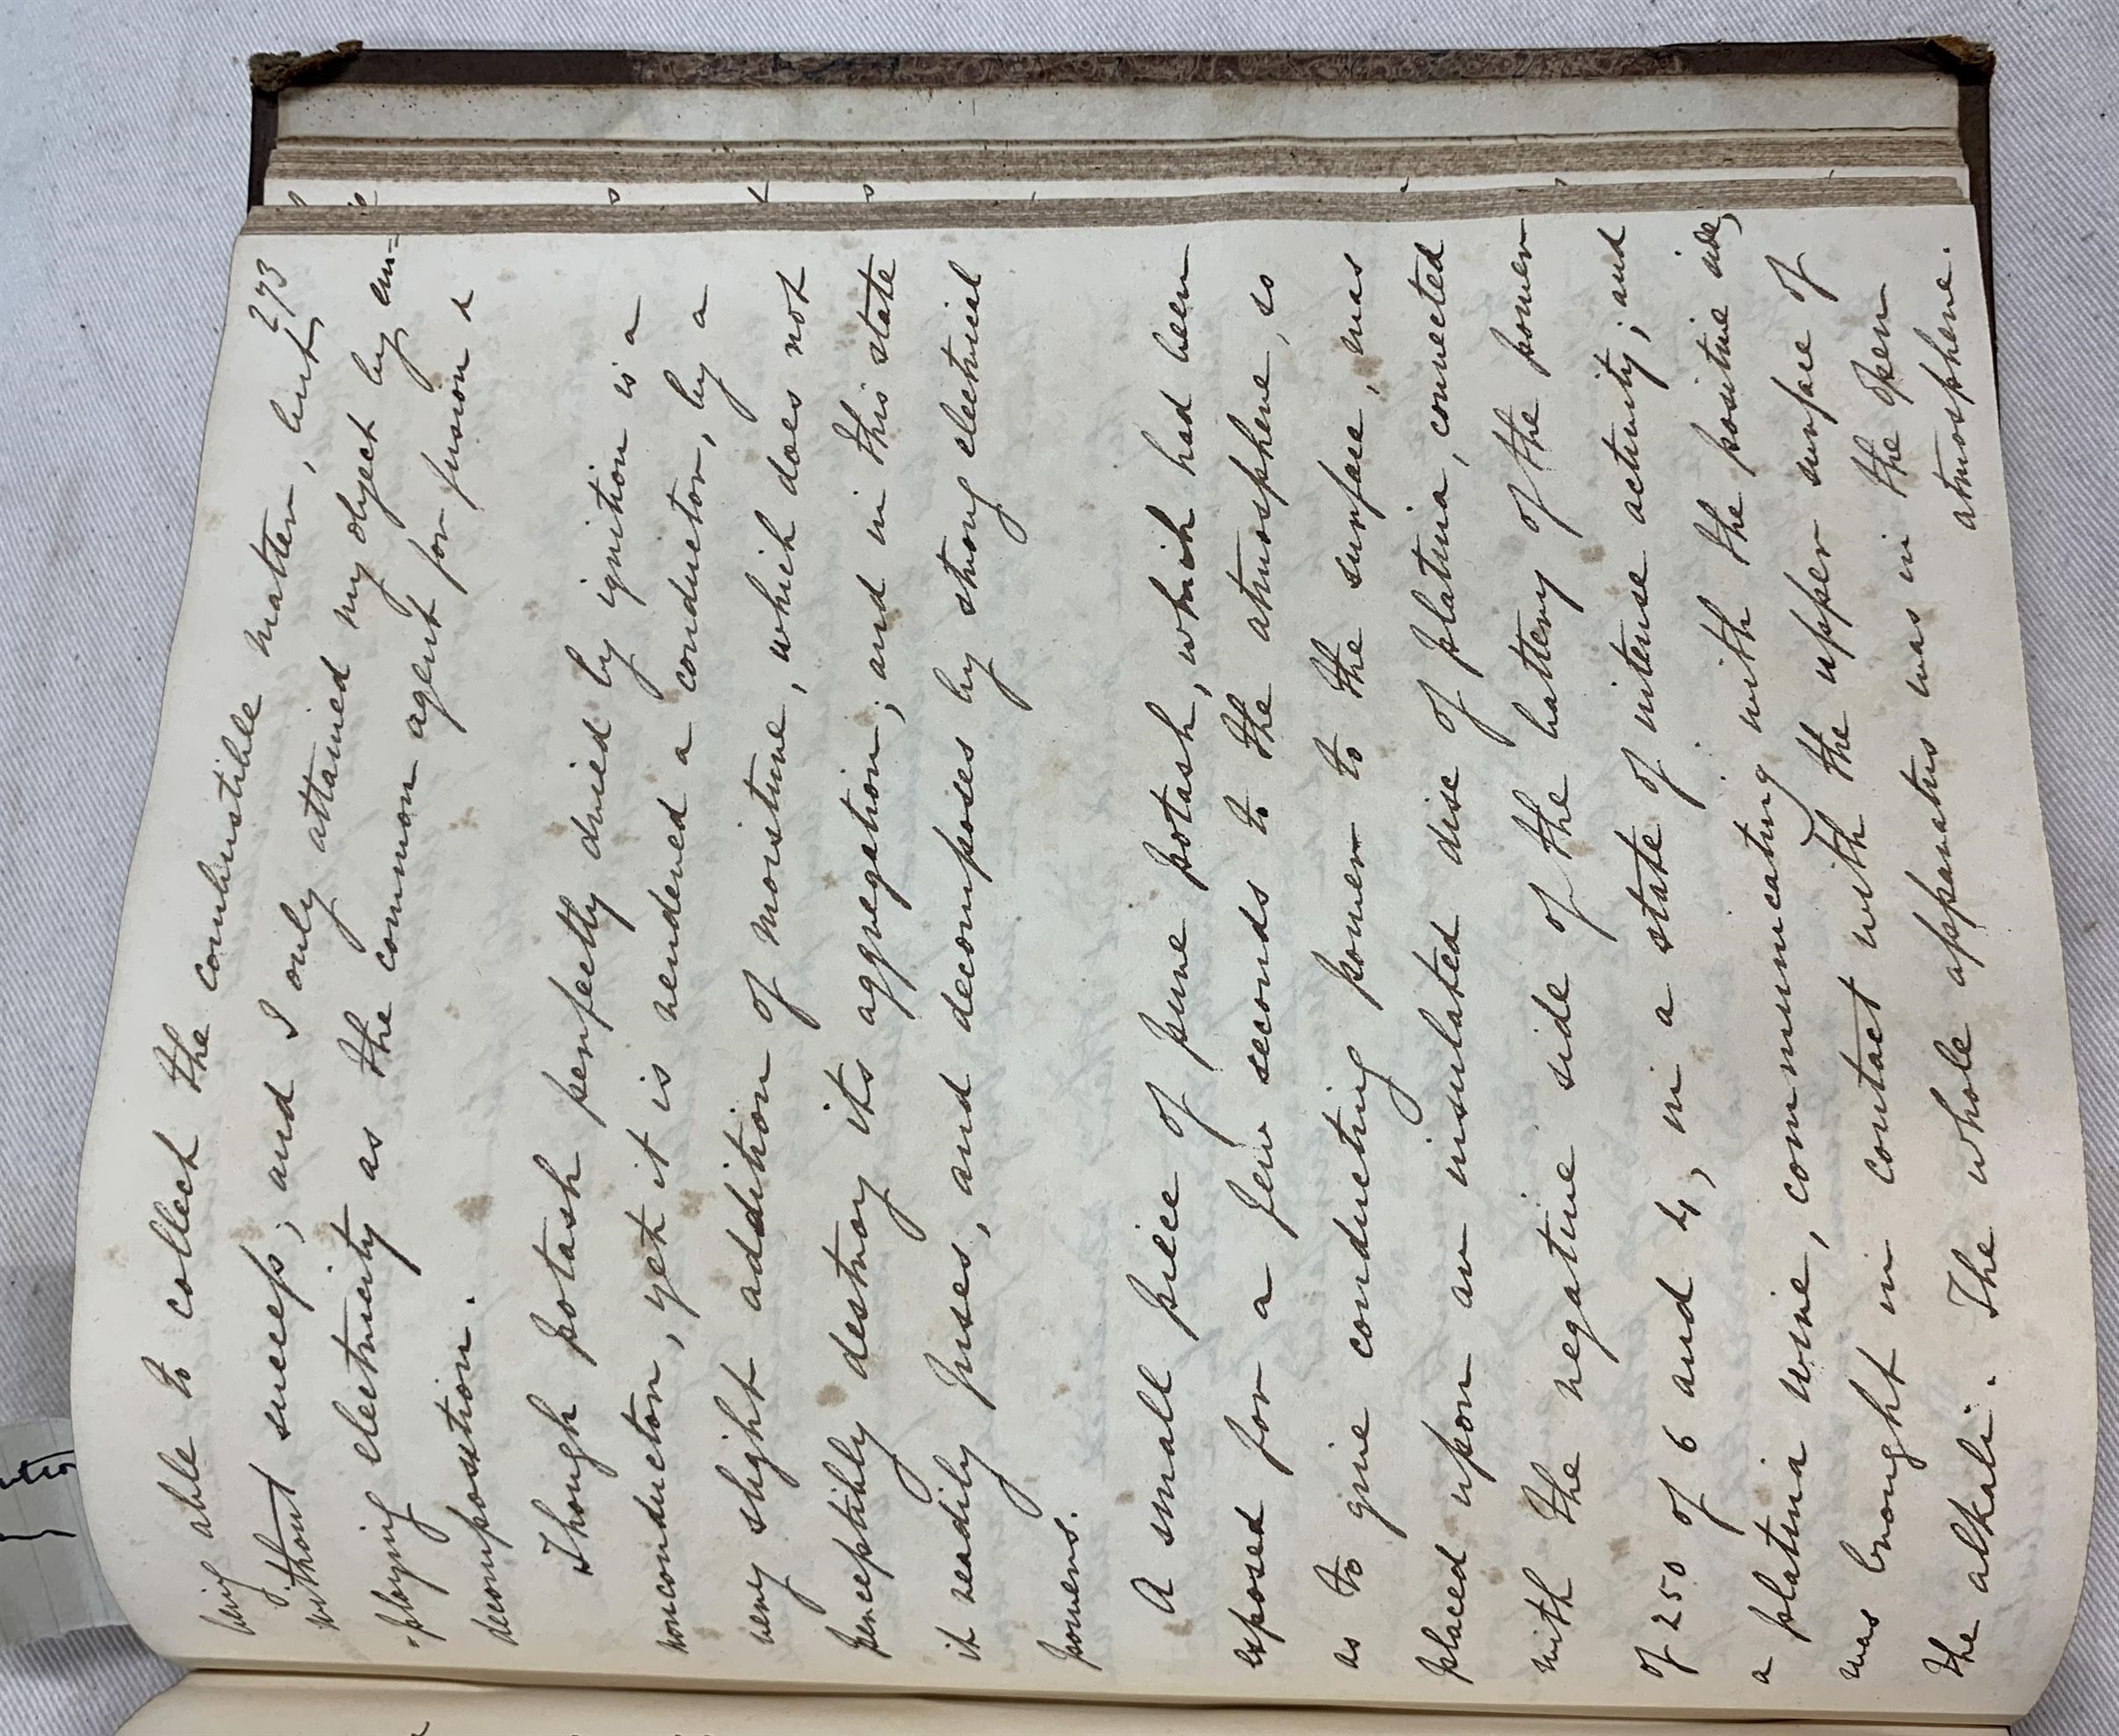 273
being able to collect the combustible matter, but
without success; and I only attained my object by em-
-ploying electricity as the common agent for fusion &
decomposition.
Though potash perfectly dried by ignition is a
nonconductor, yet it is rendered a conductor, by a
very slight addition of moisture, which does not
perceptibly destroy its aggregation; and in this state
it readily fuses, and decomposes by strong electrical
powers.
A small piece of pure potash, which had been
exposed for a few seconds to the atmosphere, so
as to give conducting power to the surface, was
placed upon an insulated disc of platina, connected
with the negative side of the battery of the power
of 250 of 6 and 4, in a state of intense activity; and
a platina wire, communicating with the positive side,
was brought in contact with the upper surface of
the alkali. The whole apparatus was in the open
atmosphere.